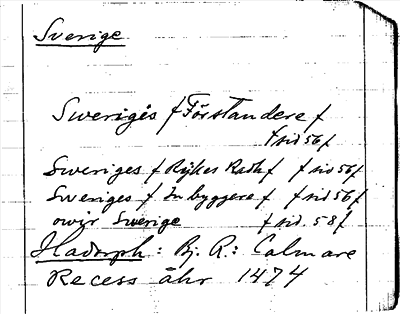 Sverige
Sweriges / Förstandere /
/ sid 56 /
Sweriges / Rijkes Radh / / sid 56 /
Sweriges / Inbyggere / / sid 56 /
owir Swerige / sid. 58 /
Hadorph: Bj. R.: Calmare
Recess åhr 1474